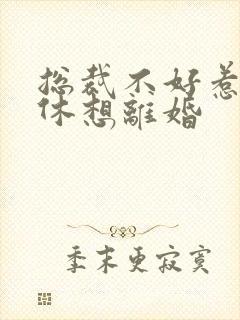 总裁不好惹
休想離婚
季末更寂寞